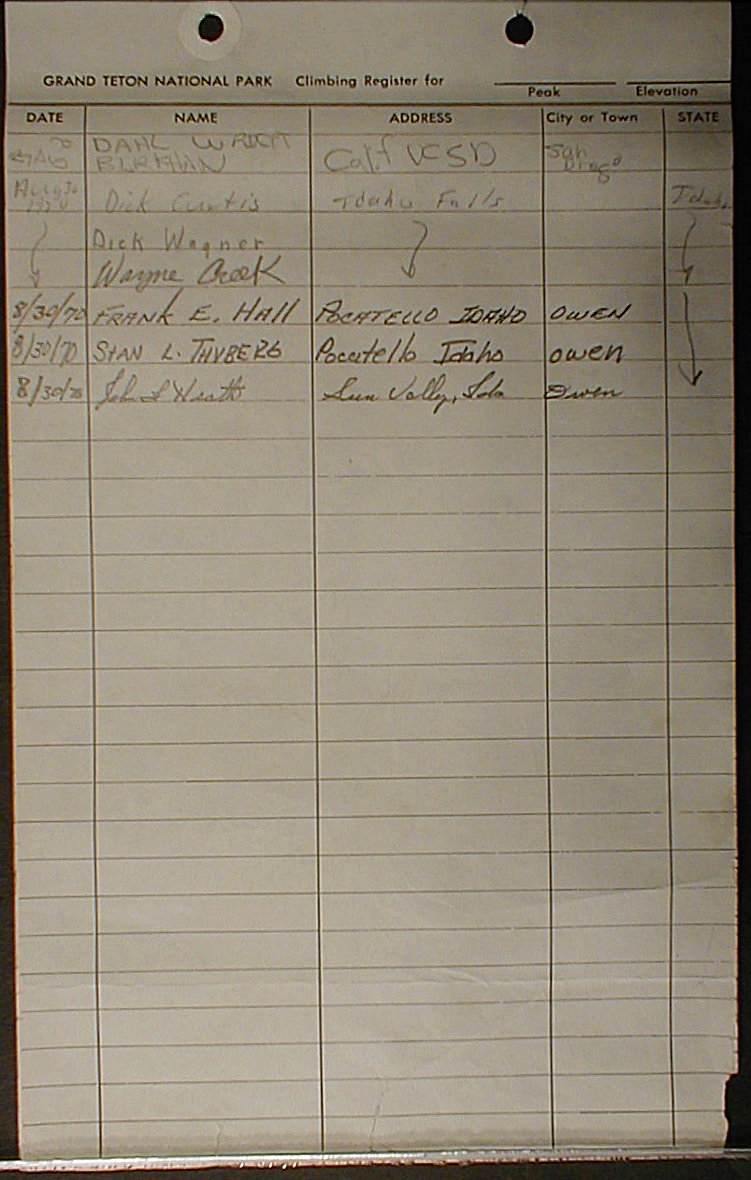 GRAND TETON NATIONAL PARK Climbing Register for
Peak Elevation
DATE NAME ADDRESS City or Town STATE
DAHL San
BERMAN Calif UCSD Diego
Aug 30 Dick Curtis Idaho Falls Idaho
1970
Dick Wagner
Wayne Creek
8/30/70 FRANK E. HAll POCATELLO IDAHO OWEN
8/30/70 STAN L. Pocatello Idaho owen
8/30/70 John Sun Valley, Ida Owen